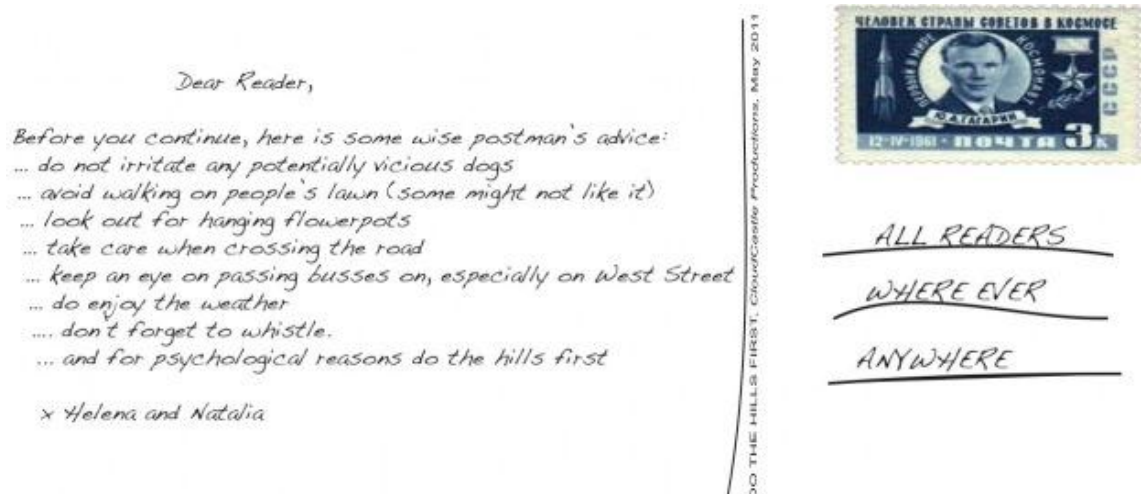 Dear Reader,
Before you continue, here is some wise postman's advice:
... do not irritate any potentially vicious dogs
... avoid walking on people's lawn (some might not like it)
... look out for hanging flowerpots
... take care when crossing the road
... keep an eye on passing busses on, especially on West Street
... do enjoy the weather
.... don't forget to whistle.
... and for psychological reasons do the hills first
x Helena and Natalia
DO THE HILLS FIRST, CloudCastle Productions, May 2011
ЧЕЛОВЕК СТРАНЫ СОВЕТОВ В КОСМОСЕ
ПЕРВЫЙ В МИРЕ КОСМОНАВТ
СССР
Ю.А.ГАГАРИН
12-IV-1961 · ПОЧТА 3К
ALL READERS
WHERE EVER
ANYWHERE